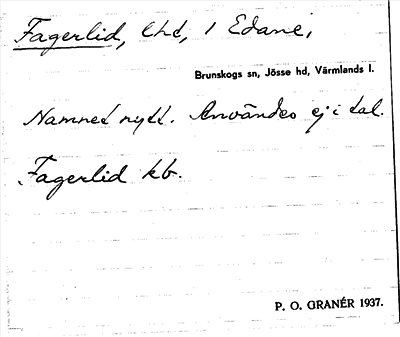 Fagerlid, lhd, 1 Edane,
Brunskogs sn, Jösse hd, Värmlands l.
Namnet nytt. Användes ej i tal.
Fagerlid kb.
P. O. GRANÉR 1937.